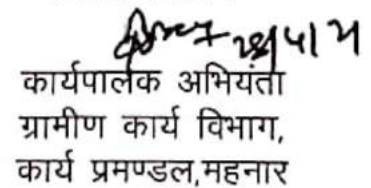 कार्यपालक अभियंता
ग्रामीण कार्य विभाग,
कार्य प्रमण्डल,महनार